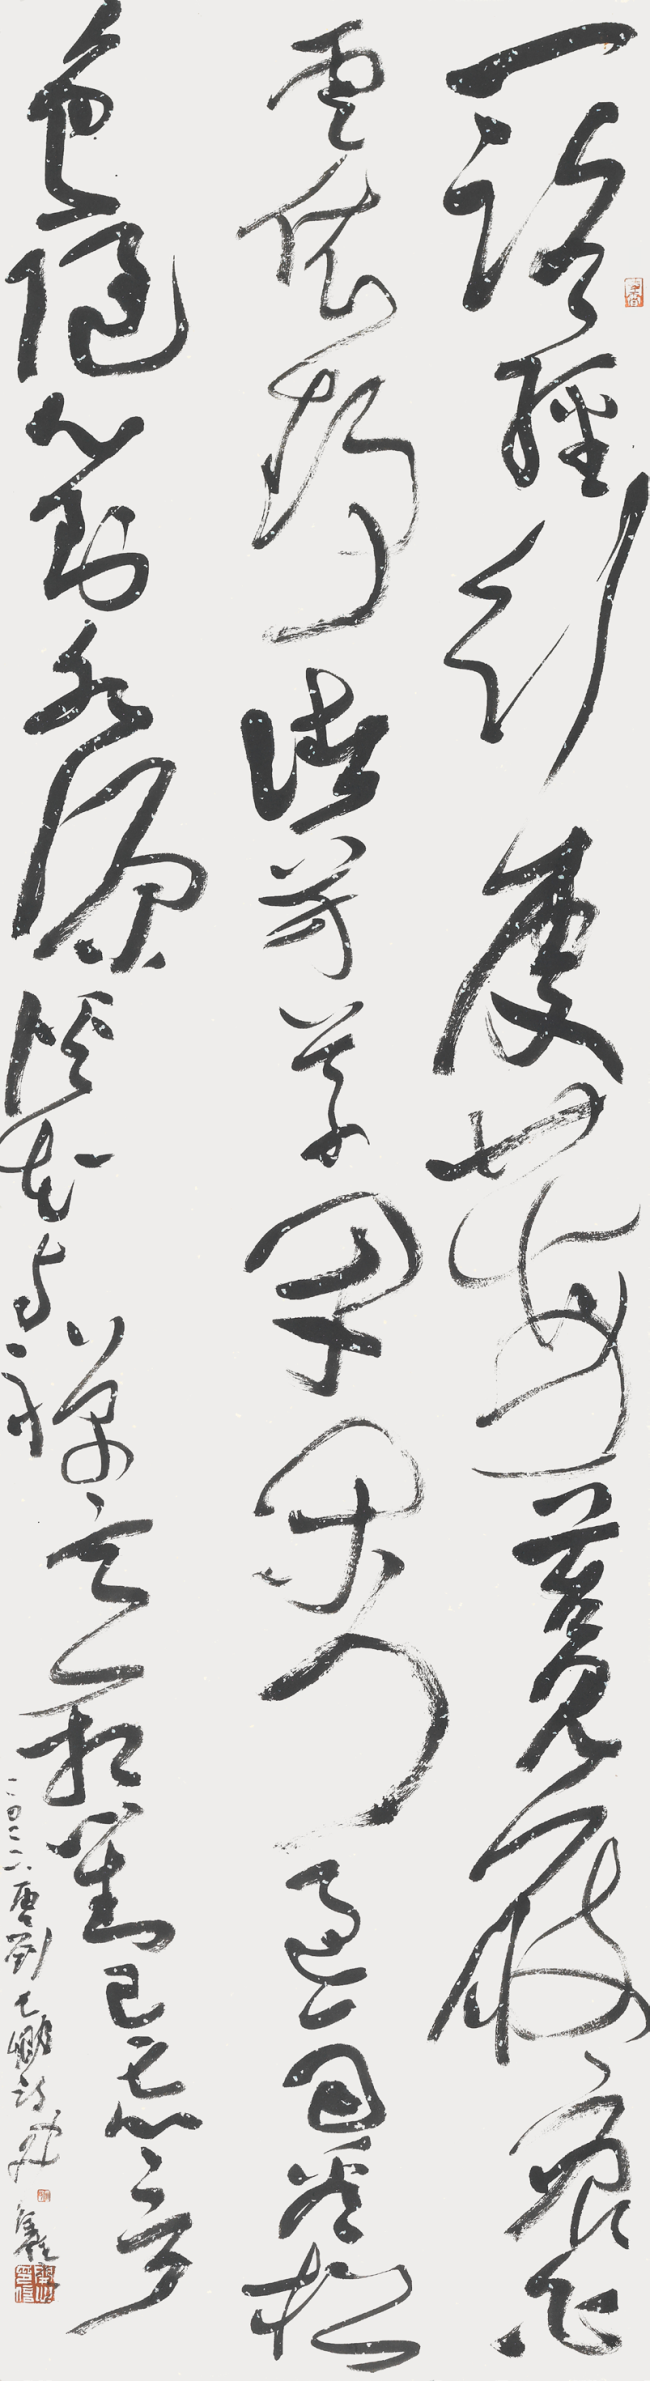 一路經行處莓苔見履痕白
雲依靜渚芳草閉閑門過雨看松
色隨山到水源溪花與禪意相對已忘言
唐劉長卿詩